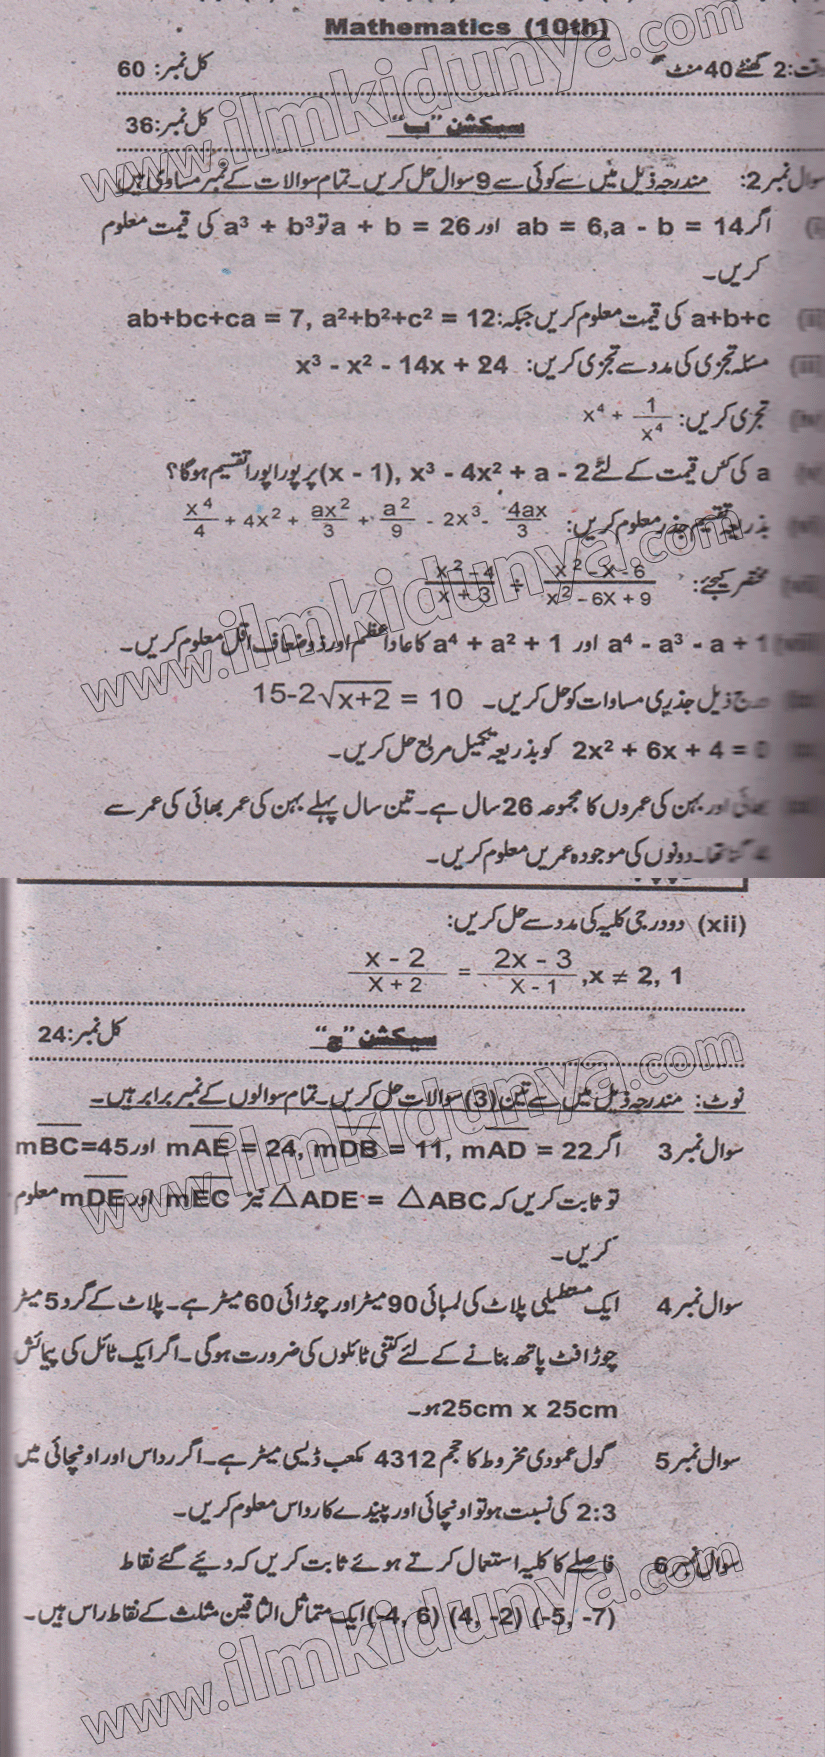 Mathematics (10th)
وقت: 2 گھنٹے 40 منٹ کل نمبر: 60
سیکشن "ب" کل نمبر: 36
سوال نمبر 2: مندرجہ ذیل میں سے کوئی سے 9 سوال حل کریں۔ تمام سوالات کے نمبر مساوی ہیں
(i) اگر ab = 6, a - b = 14 اور a + b = 26 تو a³ + b³ کی قیمت معلوم
کریں۔
(ii) a+b+c کی قیمت معلوم کریں جبکہ: ab+bc+ca = 7, a²+b²+c² = 12
(iii) مسئلہ تجزی کی مدد سے تجزی کریں: x³ - x² - 14x + 24
(iv) تجزی کریں: x⁴ + 1/x⁴
(v) a کی کس قیمت کے لئے x³ - 4x² + a - 2 ,(x - 1) پر پورا پورا تقسیم ہوگا؟
(vi) بذریعہ تقسیم جذر معلوم کریں: x⁴/4 + 4x² + ax²/3 + a²/9 - 2x³ - 4ax/3
(vii) مختصر کیجئے: x² - 4/x + 3 ÷ x² - x - 6/x² - 6x + 9
(viii) a⁴ - a³ - a + 1 اور a⁴ + a² + 1 کا عاد اعظم اور ذواضعاف اقل معلوم کریں۔
درج ذیل جذری مساوات کو حل کریں۔ 15-2√x+2 = 10
2x² + 6x + 4 = 0 کو بذریعہ تکمیل مربع حل کریں۔
بھائی اور بہن کی عمروں کا مجموعہ 26 سال ہے۔ تین سال پہلے بہن کی عمر بھائی کی عمر سے
گنا تھا۔ دونوں کی موجودہ عمریں معلوم کریں۔
(xii) دو درجی کلیہ کی مدد سے حل کریں:
x - 2/x + 2 = 2x - 3/x - 1 , x ≠ 2, 1
سیکشن "ج" کل نمبر: 24
نوٹ: مندرجہ ذیل میں سے تین (3) سوالات حل کریں۔ تمام سوالوں کے نمبر برابر ہیں۔
سوال نمبر 3 اگر mAE = 24, mDB = 11, mAD = 22 اور mBC=45
تو ثابت کریں کہ △ADE = △ABC نیز mEC اور mDE معلوم
کریں۔
سوال نمبر 4 ایک مستطیلی پلاٹ کی لمبائی 90 میٹر اور چوڑائی 60 میٹر ہے۔ پلاٹ کے گرد 5 میٹر
چوڑا فٹ پاتھ بنانے کے لئے کتنی ٹائلوں کی ضرورت ہوگی۔ اگر ایک ٹائل کی پیمائش
25cm x 25cm ہو۔
سوال نمبر 5 گول عمودی مخروط کا حجم 4312 مکعب ڈیسی میٹر ہے۔ اگر رداس اور اونچائی میں
2:3 کی نسبت ہو تو اونچائی اور پیندے کا رداس معلوم کریں۔
سوال نمبر 6 فاصلے کا کلیہ استعمال کرتے ہوئے ثابت کریں کہ دیئے گئے نقاط
(-5, -7) (4, -2) (-4, 6) ایک متماثل الساقین مثلث کے نقاط راس ہیں۔
www.ilmkidunya.com
www.ilmkidunya.com
www.ilmkidunya.com
www.ilmkidunya.com